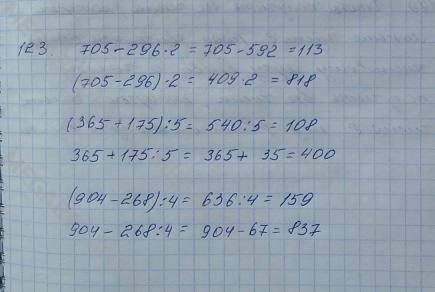 123. 705-296·2 = 705-592 = 113
(705-296)·2 = 409·2 = 818
(365+175):5 = 540:5 = 108
365+175:5 = 365+ 35 = 400
(904-268):4 = 636:4 = 159
904- 268:4 = 904-67 = 837